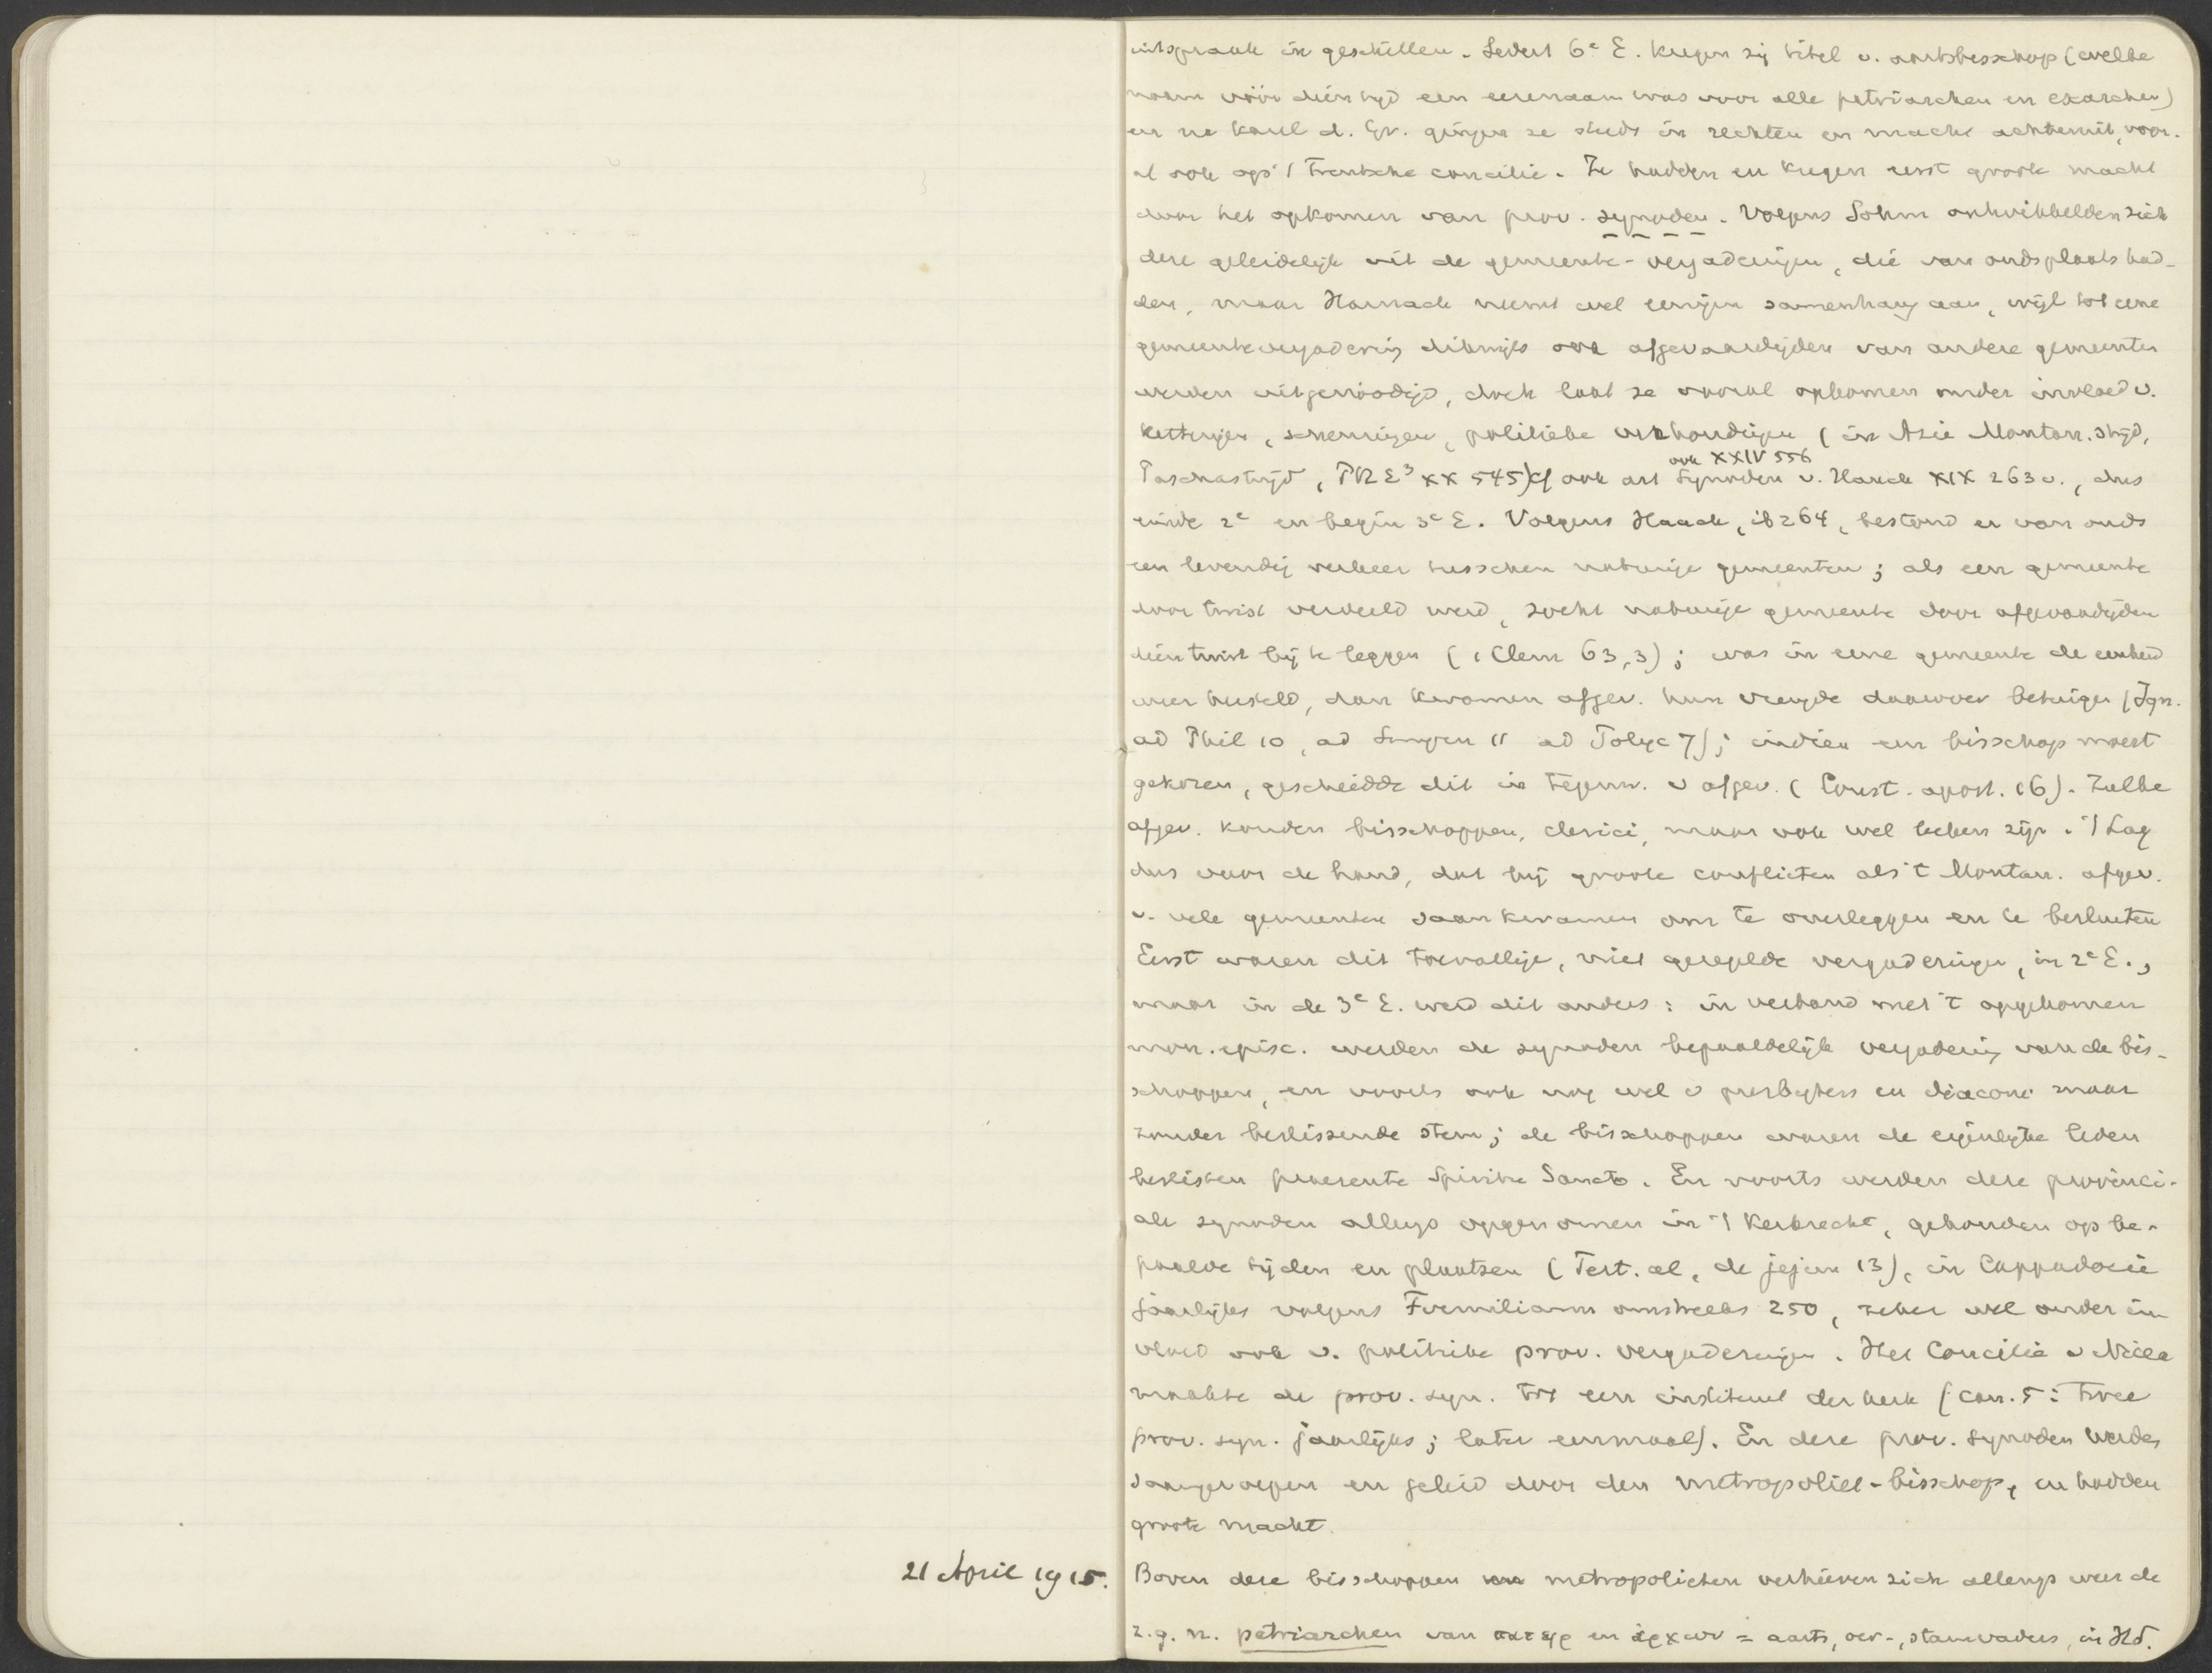 uitspraak in geschillen. Sedert 6e E. kregen zij titel v. aartsbisschop (welke
naam vóór dien tijd een eerenaam was voor alle patriarchen en exarchen)
en na Karel d. Gr. gingen ze steeds in rechten en macht achteruit, voor-
al ook op 't Trentsche concilie. Ze hadden en kregen eerst groote macht
door het opkomen van prov. synoden. Volgens Sohm ontwikkelden zich
deze geleidelijk uit de gemeente-vergaderingen, die van ouds plaats had-
den, maar Harnack neemt wel eenigen samenhang aan, wijl tot eene
gemeentevergadering dikwijls ook afgevaardigden van andere gemeenten
werden uitgenoodigd, doch laat ze vooral opkomen onder invloed v.
ketterijen, scheuringen, politieke verhoudingen (in Azie Montan. strijd,
ook XXIV 556
Paschastrijd, PRE3 XX 545) cf ook art Synoden v. Hauck XIX 263 v., dus
einde 2e en begin 3e E. Volgens Hauck, ib 264, bestond er van ouds
een levendig verkeer tusschen naburige gemeenten; als een gemeente
door twist verdeeld werd, zocht naburige gemeente door afgevaardigden
dien twist bij te leggen (1 Clem 63,3); was in eene gemeente de eenheid
weer hersteld, dan kwamen afgev. hun vreugde daarover betuigen (Ign.
ad Phil 10, ad Smyrn 11 ad Polyc 7); indien een bisschop moest
gekozen, geschiedde dit in tegenw. v afgev. (Const. apost. 16). Zulke
afgev. konden bisschoppen, clerici, maar ook wel leeken zijn. 't Lag
dus voor de hand, dat bij groote conflicten als 't Montan. afgev.
v. vele gemeenten saamkwamen om te overleggen en te besluiten
Eerst waren dit toevallige, niet geregelde vergaderingen, in 2e E.,
maar in de 3e E. werd dit anders: in verband met 't opgekomen
mon. episc. werden de synoden bepaaldelijk vergadering van de bis-
schoppen, en voorts ook nog wel v presbyters en diaconi maar
zonder beslissende stem; de bisschoppen waren de eigenlijke leden
beslisten praesente Spiritu Sancto. En voorts werden deze provinci-
ale synoden allengs opgenomen in 't kerkrecht, gehouden op be-
paalde tijden en plaatsen (Tert. al. de jejun 13), in Cappadocie
jaarlijks volgens Firmilianus omstreeks 250, zeker wel onder in-
vloed ook v. politieke prov. vergaderingen. Het Concilie v Nicea
maakte de prov. syn. tot een instituut der kerk (can. 5: twee
prov. syn. jaarlijks; later eenmaal). En deze prov. synoden werden
saamgeroepen en geleid door den metropoliet-bisschop, en hadden
groote macht.
21 April 1915. Boven deze bisschoppen metropolieten verhieven zich allengs weer de
z.g.n. patriarchen van πατηρ en ἀρχων = aarts, oer-, stamvaders, in Hd.